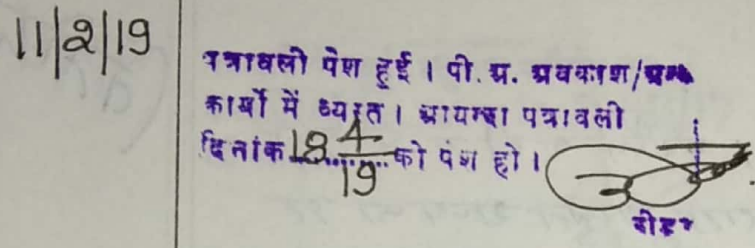 11/2/19
पत्रावली पेश हुई । पी. अ. अवकाश/अन्य
कार्यो में व्यस्त । आयन्दा पत्रावली
दिनांक 18 4/19 को पेश हो ।
रीडर